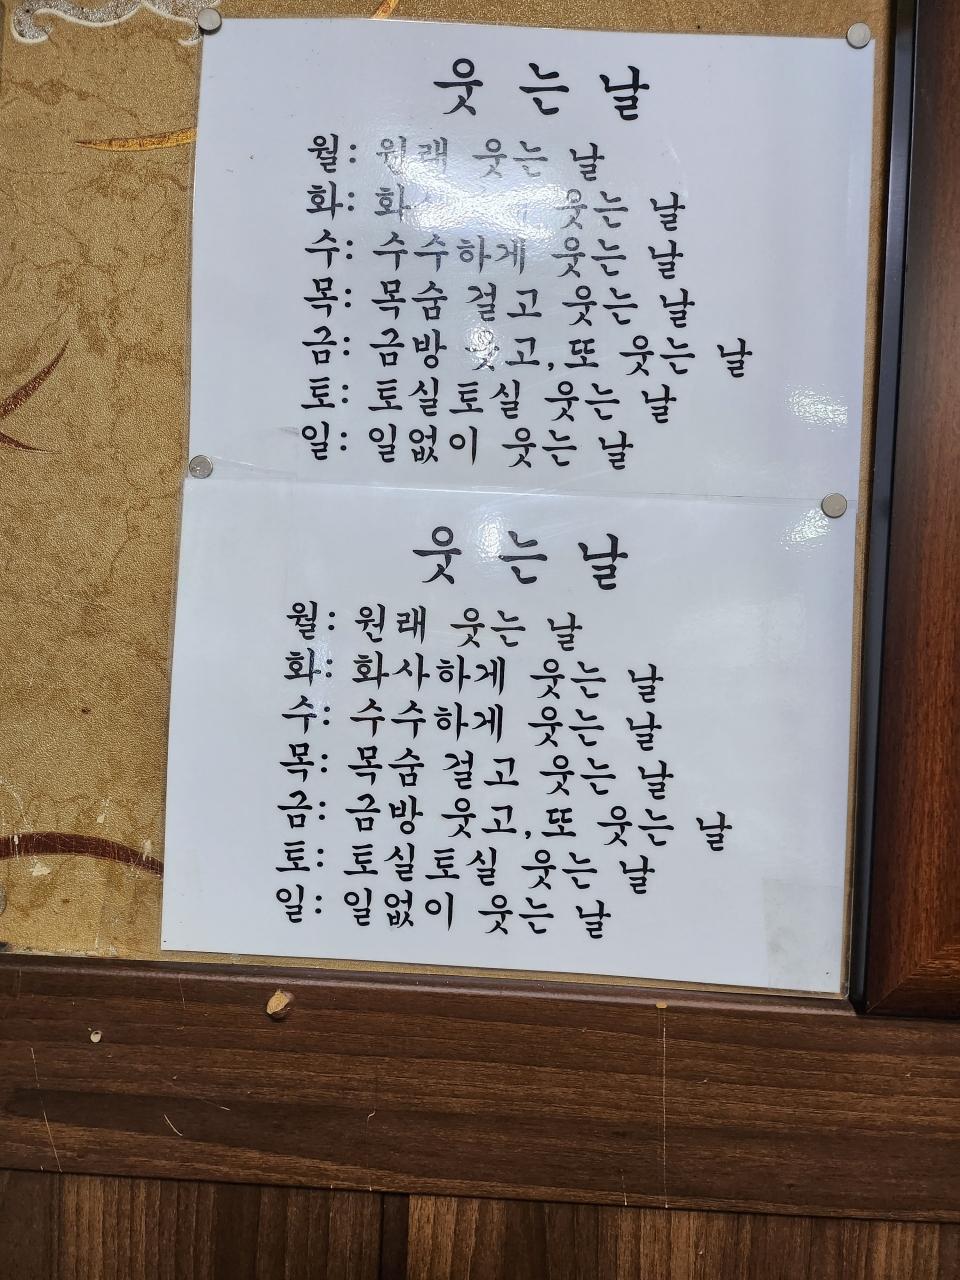 웃는날
월: 원래 웃는 날
화: 화 웃는 날
수: 수수하게 웃는 날
목: 목숨 걸고 웃는 날
금: 금방 웃고, 또 웃는 날
토: 토실토실 웃는 날
일: 일없이 웃는 날
웃는날
월: 원래 웃는 날
화: 화사하게 웃는 날
수: 수수하게 웃는 날
목: 목숨 걸고 웃는 날
금: 금방 웃고, 또 웃는 날
토: 토실토실 웃는 날
일: 일없이 웃는 날